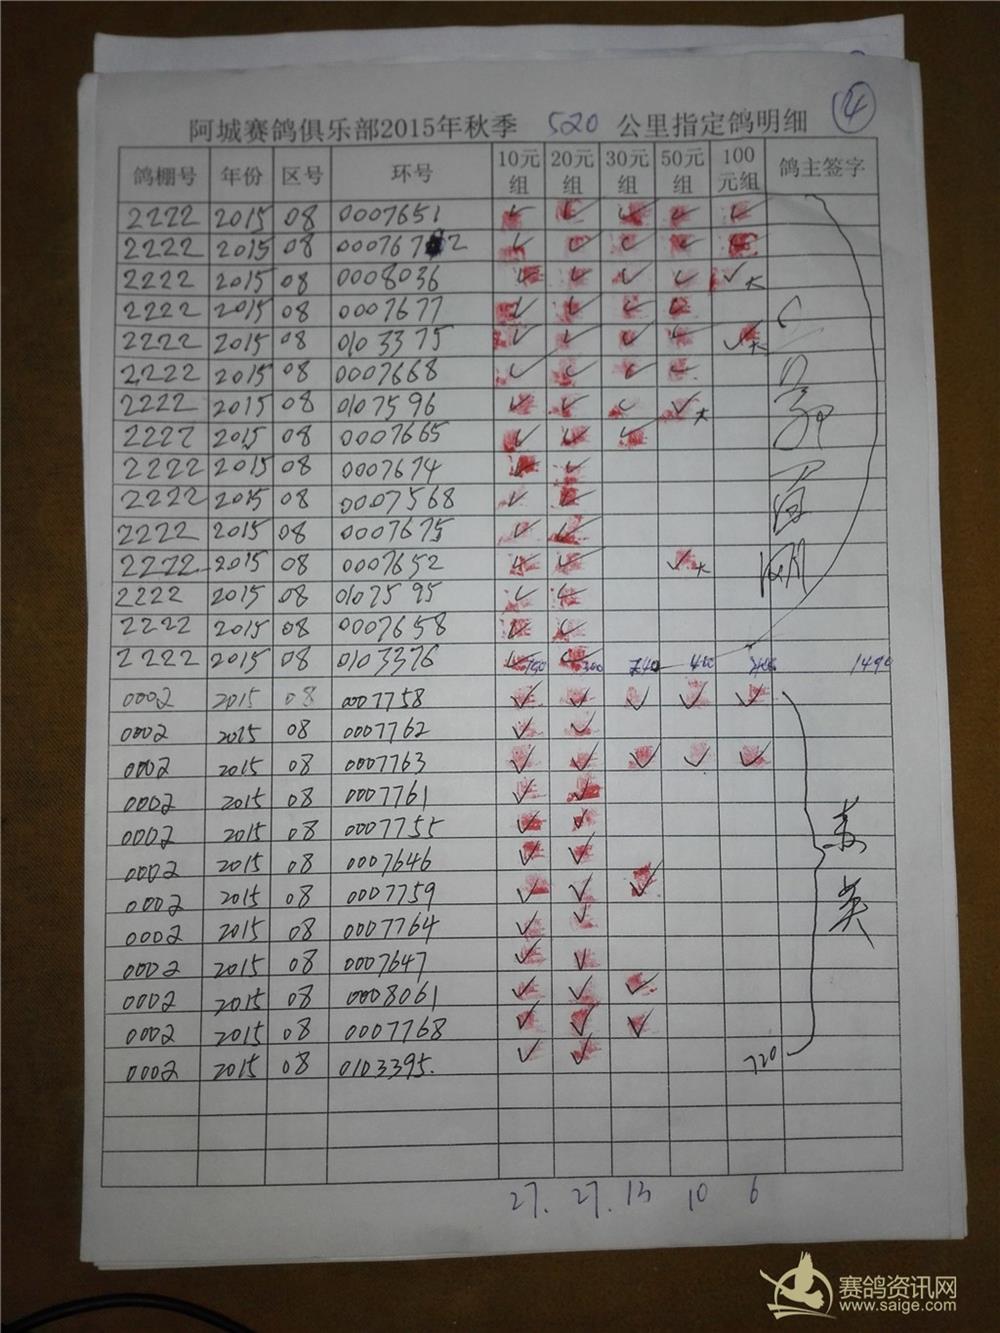 ④
阿城赛鸽俱乐部2015年秋季 520 公里指定鸽明细
鸽棚号 年份 区号 环号 10元组 20元组 30元组 50元组 100元组 鸽主签字
2222 2015 08 0007651 ✓ ✓ ✓ ✓ ✓
2222 2015 08 000767 2 ✓ ✓ ✓ ✓ ✓
2222 2015 08 0008036 ✓ ✓ ✓ ✓ ✓大
2222 2015 08 0007677 ✓ ✓ ✓ ✓
2222 2015 08 0103375 ✓ ✓ ✓ ✓ ✓大
2222 2015 08 0007668 ✓ ✓ ✓ ✓
2222 2015 08 0107596 ✓ ✓ ✓ ✓大
2222 2015 08 0007665 ✓ ✓ ✓
2222 2015 08 0007674 ✓ ✓
2222 2015 08 0007568 ✓ ✓
2222 2015 08 0007675 ✓ ✓
2222 2015 08 0007652 ✓ ✓ ✓大
2222 2015 08 0107595 ✓ ✓
2222 2015 08 0007658 ✓ ✓
2222 2015 08 0103376 ✓150 ✓300 240 400 400 1490
0002 2015 08 0007758 ✓ ✓ ✓ ✓ ✓
0002 2015 08 0007762 ✓ ✓
0002 2015 08 0007763 ✓ ✓ ✓ ✓ ✓
0002 2015 08 0007761 ✓ ✓
0002 2015 08 0007755 ✓ ✓
0002 2015 08 0007646 ✓ ✓
0002 2015 08 0007759 ✓ ✓ ✓
0002 2015 08 0007764 ✓ ✓
0002 2015 08 0007647 ✓ ✓
0002 2015 08 0008061 ✓ ✓ ✓
0002 2015 08 0007768 ✓ ✓ ✓
0002 2015 08 0103395. ✓ ✓ 720
27. 27. 13 10 6
赛鸽资讯网
www.saige.com